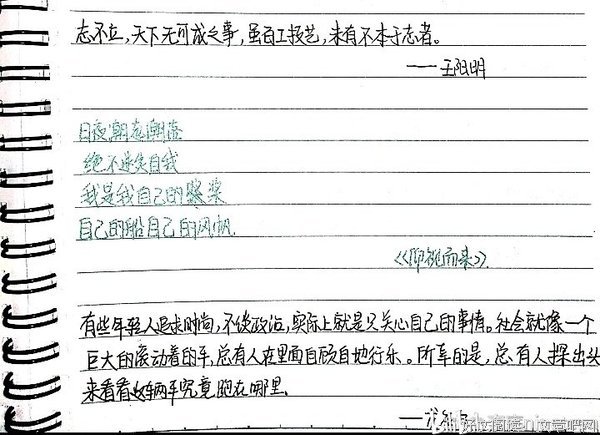 志不立，天下无可成之事，虽百工技艺，未有不本于志者。
——王阳明
日夜潮 潮
绝不迷失自我
我是我自己的 桨
自己的船自己的风帆.
《仰视而来》
有些年轻人追求时尚，不谈政治，实际上就是只关心自己的事情。社会就像一个
巨大的滚动着的车，总有人在里面自顾自地行乐。所幸的是，总有人探出头
来看看这辆车究竟跑在哪里.
文章吧网